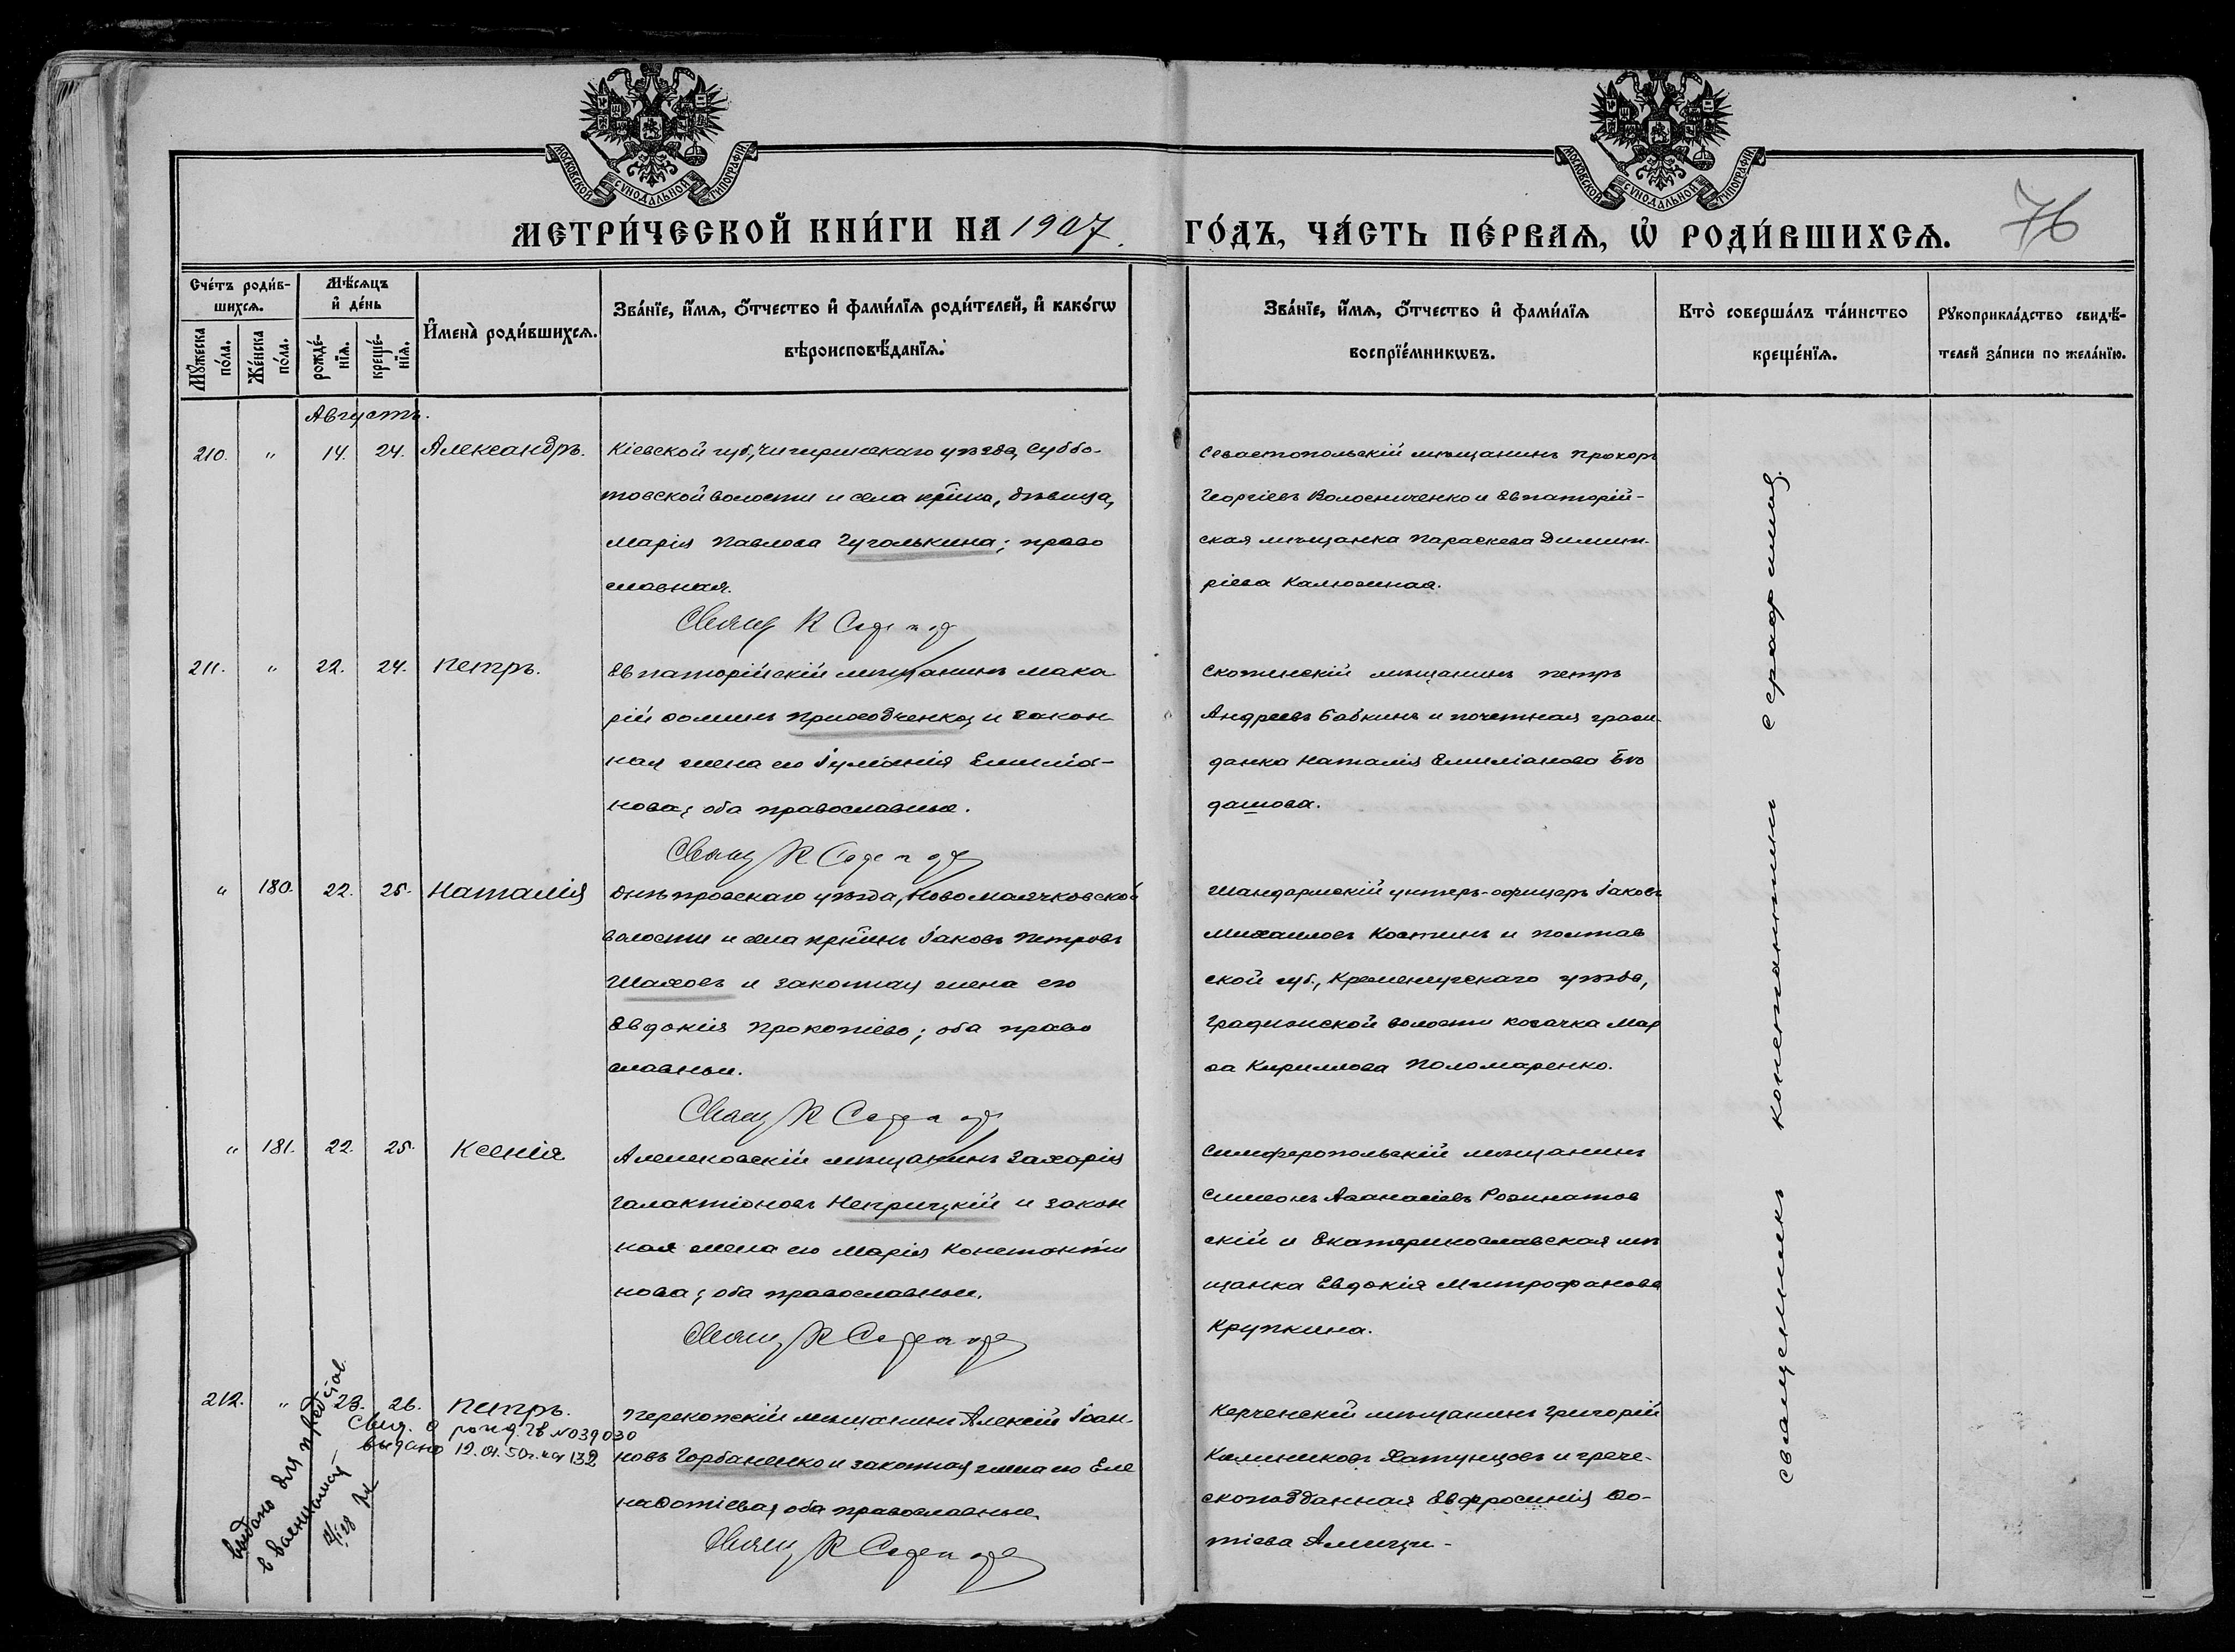 МОСКОВСКОЙ СУНОДАЛЬНОЙ ТИПОГРАФІИ
МОСКОВСКОЙ СУНОДАЛЬНОЙ ТИПОГРАФІИ
МЕТРИ́ЧЕСКОЙ КНИ́ГИ НА 1907
ГО́ДЪ, ЧА́СТЬ ПЕ́РВАѦ, Ѡ РОДИ́ВШИХСѦ.
76
Сче́тъ роди́в-
шихсѧ.
Мꙋ́жеска по́ла.
Же́нска по́ла.
Мѣ́сѧцъ
и де́нь
рожде́-нїѧ.
креще́-нїѧ.
Имена̀ роди́вшихсѧ.
Зва́нїе, и́мѧ, о́тчество и фами́лїѧ роди́телей, и како́гѡ
вѣроисповѣ́данїѧ.
Зва́нїе, и́мѧ, о́тчество и фами́лїѧ
воспрїе́мникѡвъ.
Кто̀ соверша́лъ та́инство
креще́нїѧ.
Рꙋкоприкла́дство свидѣ́-
телей за́писи по жела́нїю.
Августъ.
210. " 14. 24. Александръ.
Кіевской губ., Чигиринскаго уѣзда, Суббо-
товской волости и села кр̃нка, дѣвица,
Марія Павлова Чуголькина; право
славная.
Свящ К
Севастопольскій мѣщанинъ Прохоръ
Георгіевъ Волосниченко и Евпаторій-
ская мѣщанка Параскева Димит-
ріева Калюжная.
211. " 22. 24. Петръ.
Евпаторійскій мѣщанинъ Мака
рій Ѳоминъ Приходченко, и закон
ная жена его Іуліанія Емиліа-
нова; оба православные.
Свящ К
мѣщанинъ Петръ
Андреевъ Бабкинъ и почетная граж-
данка Наталія Емиліанова Бѣ
дашова.
" 180. 22. 25. Наталія
Днѣпровскаго уѣзда, Новомаячковской
волости и села кр̃нинъ Іаковъ Петровъ
Шаховъ и законная жена его
Евдокія Прокопіева; оба право
славные.
Свящ К
Жандармскій унтеръ-офицеръ Іаковъ
Михаиловъ Костинъ и Полтав
ской губ., Кременчугскаго уѣзда,
Градижской волости козачка Мар
ѳа Кириллова Поломаренко.
" 181. 22. 25. Ксенія
Алешковскій мѣщанинъ Захарія
Галактіоновъ Негрицкій и закон
ная жена его Марія Константи
нова; оба православные.
Свящ К
Симферопольскій мѣщанинъ
Симеонъ Аѳанасіевъ Розинатов
скій и Екатеринославская мѣ
щанка Евдокія Митрофанова
Крупкина.
212. " 23. 26. Петръ.
Свид. о рожд. N 039030
выдано 12.01.50г. 132
выдано для
в
Перекопскій мѣщанинъ Алексій Іоан-
новъ Горбаненко и законная жена его Еле
на Фотіевая, оба православные.
Свящ К
Керченскій мѣщанинъ Григорій
Калинниковъ Хатунцовъ и грече-
скоподданная Евфросинія Фо-
тіева
священникъ Константинъ Серафимиди.